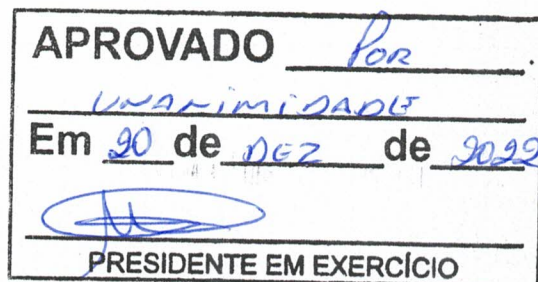 APROVADO Por
UNANIMIDADE
Em 20 de DEZ de 2022
PRESIDENTE EM EXERCÍCIO